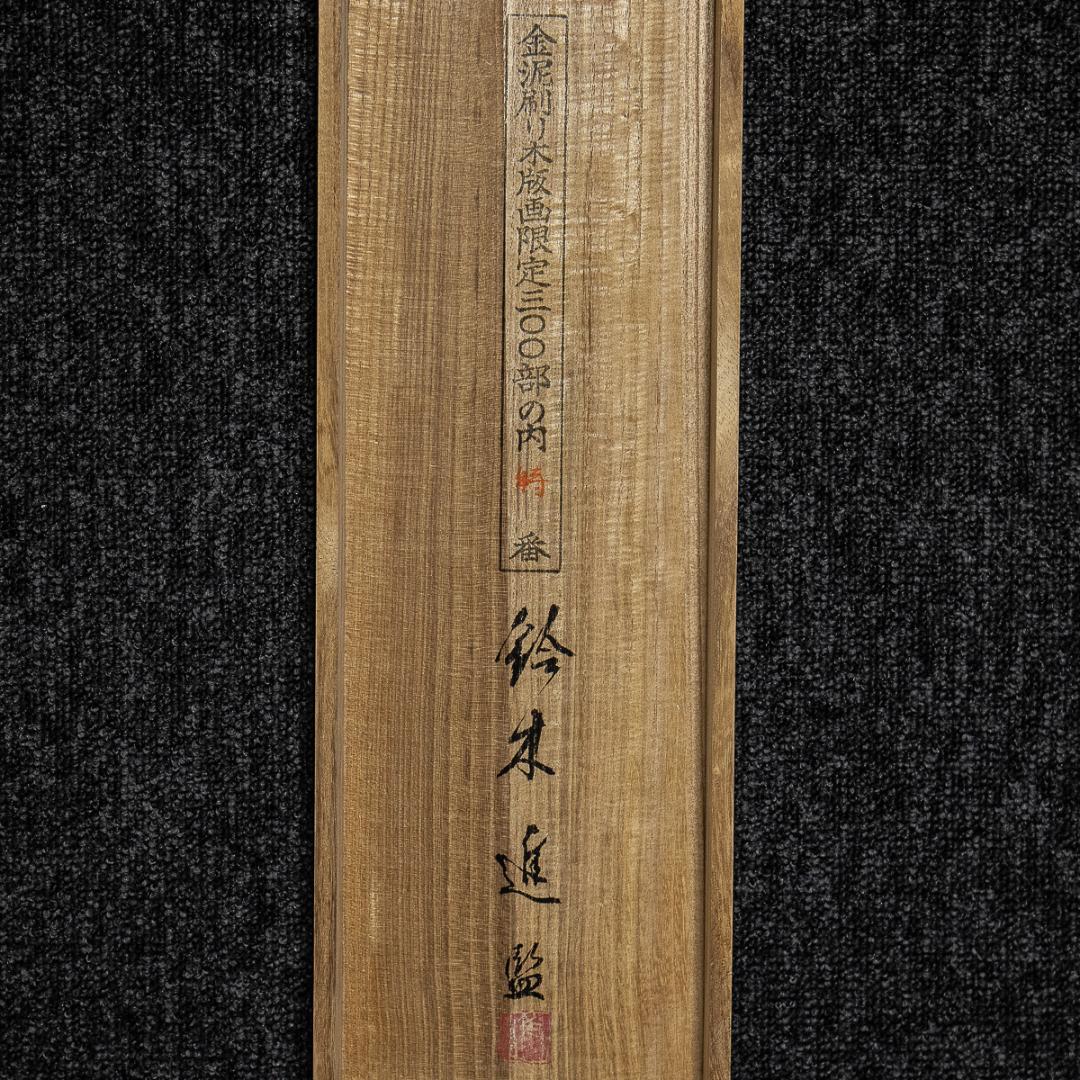 金泥刷り木版画限定三〇〇部の内 番
鈴木進監